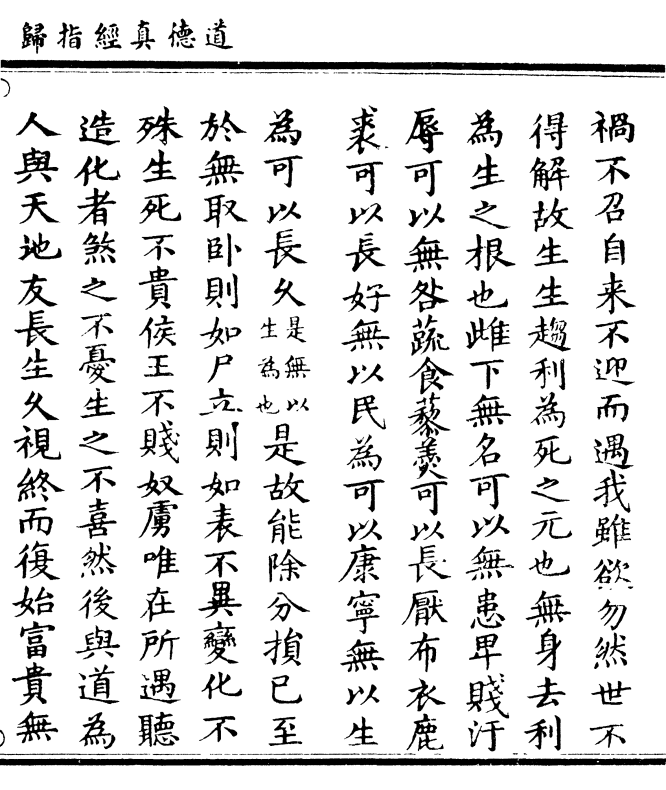 道德真經指歸
禍不召自来不迎而遇我雖欲勿然世不
得解故生生趨利為死之元也無身去利
為生之根也雌下無名可以無患卑賤汙
辱可以無咎蔬食藜羹可以長厭布衣鹿
裘可以長好無以民為可以康寧無以生
為可以長久是無以生為也是故能除分損已至
於無取卧則如尸立則如表不異變化不
殊生死不貴侯王不賤奴虜唯在所遇聽
造化者煞之不憂生之不喜然後與道為
人與天地友長生久視終而復始富貴無